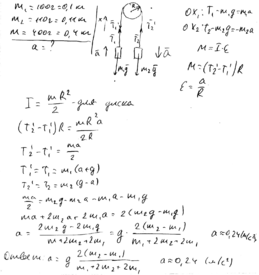 m₁ = 100г = 0,1 кг
m₂ = 110г = 0,11 кг
m = 400г = 0,4 кг
a = ?
x R
T₁' T₂'
T₁ T₂
a a
m₁g m₂g
OX₁: T₁ - m₁g = m₁a
OX₂: T₂ - m₂g = -m₂a
M = I·ε
M = (T₂' - T₁')R
ε = a/R
I = mR²/2 - для диска
(T₂' - T₁')R = mR²a/2R
T₂' - T₁' = ma/2
T₁' = T₁ = m₁(a+g)
T₂' = T₂ = m₂(g-a)
ma/2 = m₂g - m₂a - m₁a - m₁g
ma + 2m₂a + 2m₁a = 2(m₂g - m₁g)
a = 2m₂g - 2m₁g / m + 2m₂ + 2m₁ = g · 2(m₂ - m₁) / m + 2m₂ + 2m₁ a ≈ 0,24 (м/с²)
Ответ: a = g 2(m₂ - m₁) / m + 2m₂ + 2m₁ a ≈ 0,24 (м/с²)